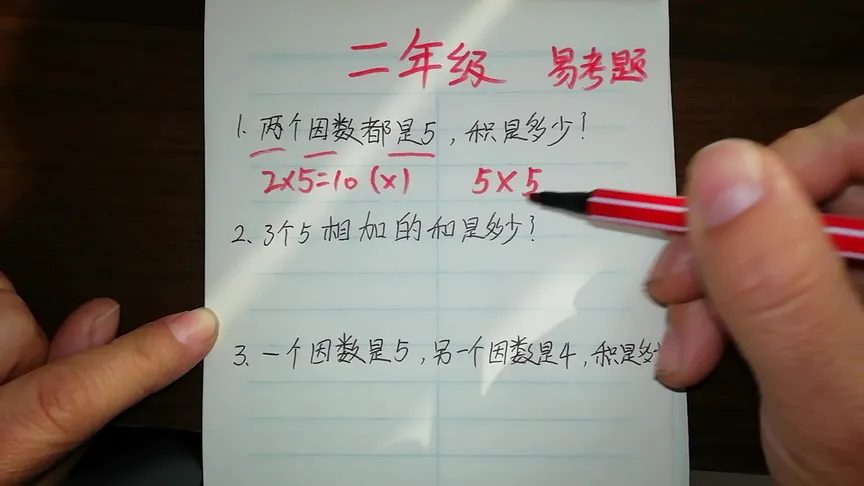 二年级 易考题
1. 两个因数都是5，积是多少？
2×5=10 (×) 5×5
2. 3个5相加的和是多少？
3. 一个因数是5，另一个因数是4，积是多